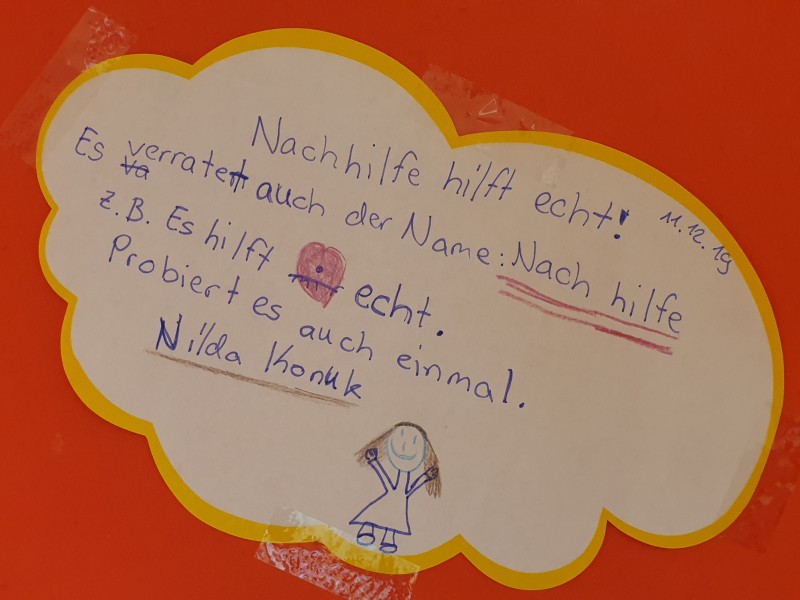 Nachhilfe hilft echt!
11.12.19
Es verratet auch der Name: Nach hilfe
z.B. Es hilft echt.
Probiert es auch einmal.
Nilda Konuk